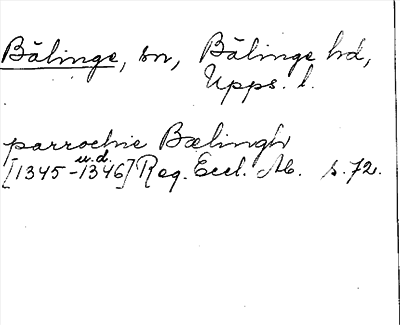 Bälinge, sn, Bälinge hd,
Upps. l.
parrochie Bælingh
u.d.
[1345-1346] Reg. Eccl. M. s. 72.